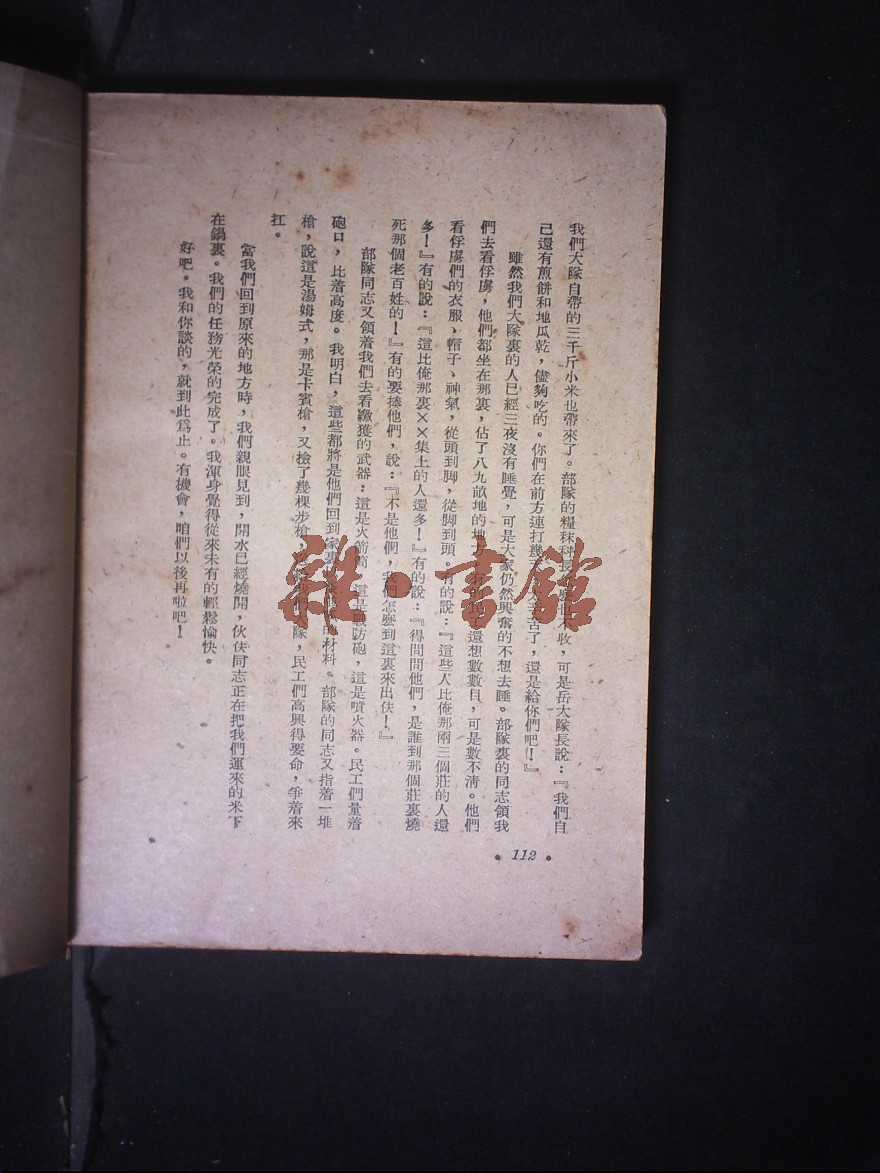 我們大隊自帶的三千斤小米也帶來了。部隊的糧秣科長不收，可是岳大隊長說：『我們自
己還有煎餅和地瓜乾，儘夠吃的。你們在前方連打辛苦了，還是給你們吧！』
雖然我們大隊裏的人已經三夜沒有睡覺，可是大家仍然興奮的不想去睡。部隊裏的同志領我
們去看俘虜，他們都坐在那裏，佔了八九畝地的地方還想數數目，可是數不淸。他們
看俘虜們的衣服、帽子、神氣，從頭到脚，從脚到頭。有的說：『這些人比俺那兩三個莊的人還
多！』有的說：『這比俺那裏××集上的人還多！』有的說：『得問問他們，是誰到那個莊裏燒
死那個老百姓的！』有的要揍他們，說：『不是他們，我們怎麼到這裏來出伕！』
部隊同志又領着我們去看繳獲的武器：這是火箭筒，這是戰防砲，這是噴火器。民工們量着
砲口，比着高度。我明白，這些都將是他們回到家裏材料。部隊的同志又指着一堆
槍，說這是湯姆式，那是卡賓槍，又檢了幾棵步槍，我們大隊，民工們高興得要命，爭着來
扛。
當我們回到原來的地方時，我們親眼見到，開水已經燒開，伙伕同志正在把我們運來的米下
在鍋裏。我們的任務光榮的完成了。我渾身覺得從來未有的輕鬆愉快。
好吧。我和你談的，就到此爲止。有機會，咱們以後再啦吧！
• 112 •
雜·書館